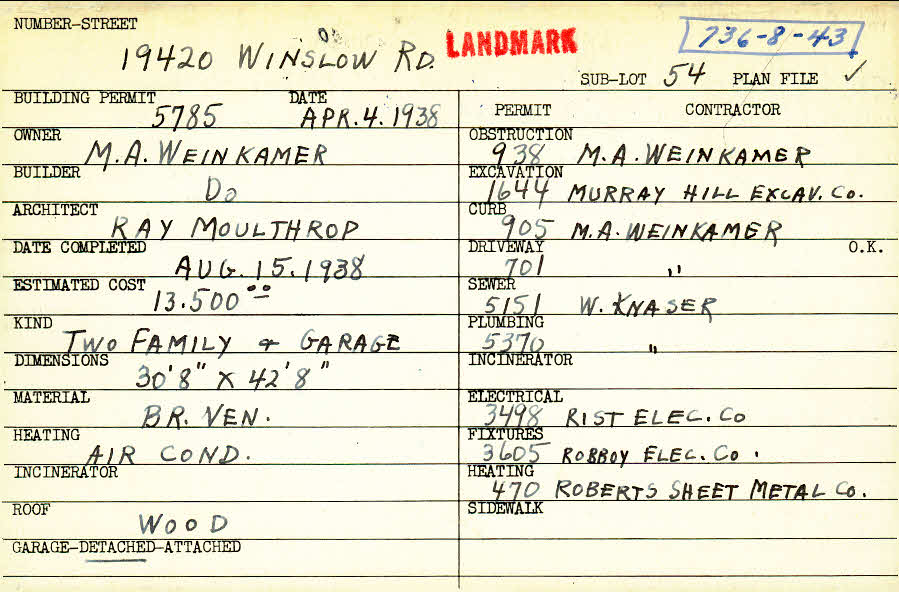 NUMBER-STREET
19420 WINSLOW RD. LANDMARK 736-8-43
SUB-LOT 54 PLAN FILE ✓
BUILDING PERMIT DATE
5785 APR. 4. 1938
OWNER
M.A. WEINKAMER
BUILDER
Do
ARCHITECT
RAY MOULTHROP
DATE COMPLETED
AUG. 15. 1938
ESTIMATED COST
13.500 00
KIND
TWO FAMILY & GARAGE
DIMENSIONS
30'8" X 42'8"
MATERIAL
BR. VEN.
HEATING
AIR COND.
INCINERATOR
ROOF
WOOD
GARAGE-DETACHED-ATTACHED
PERMIT CONTRACTOR
OBSTRUCTION
938 M.A. WEINKAMER
EXCAVATION
1644 MURRAY HILL EXCAV. Co.
CURB
905 M.A. WEINKAMER
DRIVEWAY O.K.
701 "
SEWER
5151 W. KNASER
PLUMBING
5370 "
INCINERATOR
ELECTRICAL
3498 RIST ELEC. Co
FIXTURES
3605 ROBROY ELEC. Co.
HEATING
470 ROBERTS SHEET METAL Co.
SIDEWALK